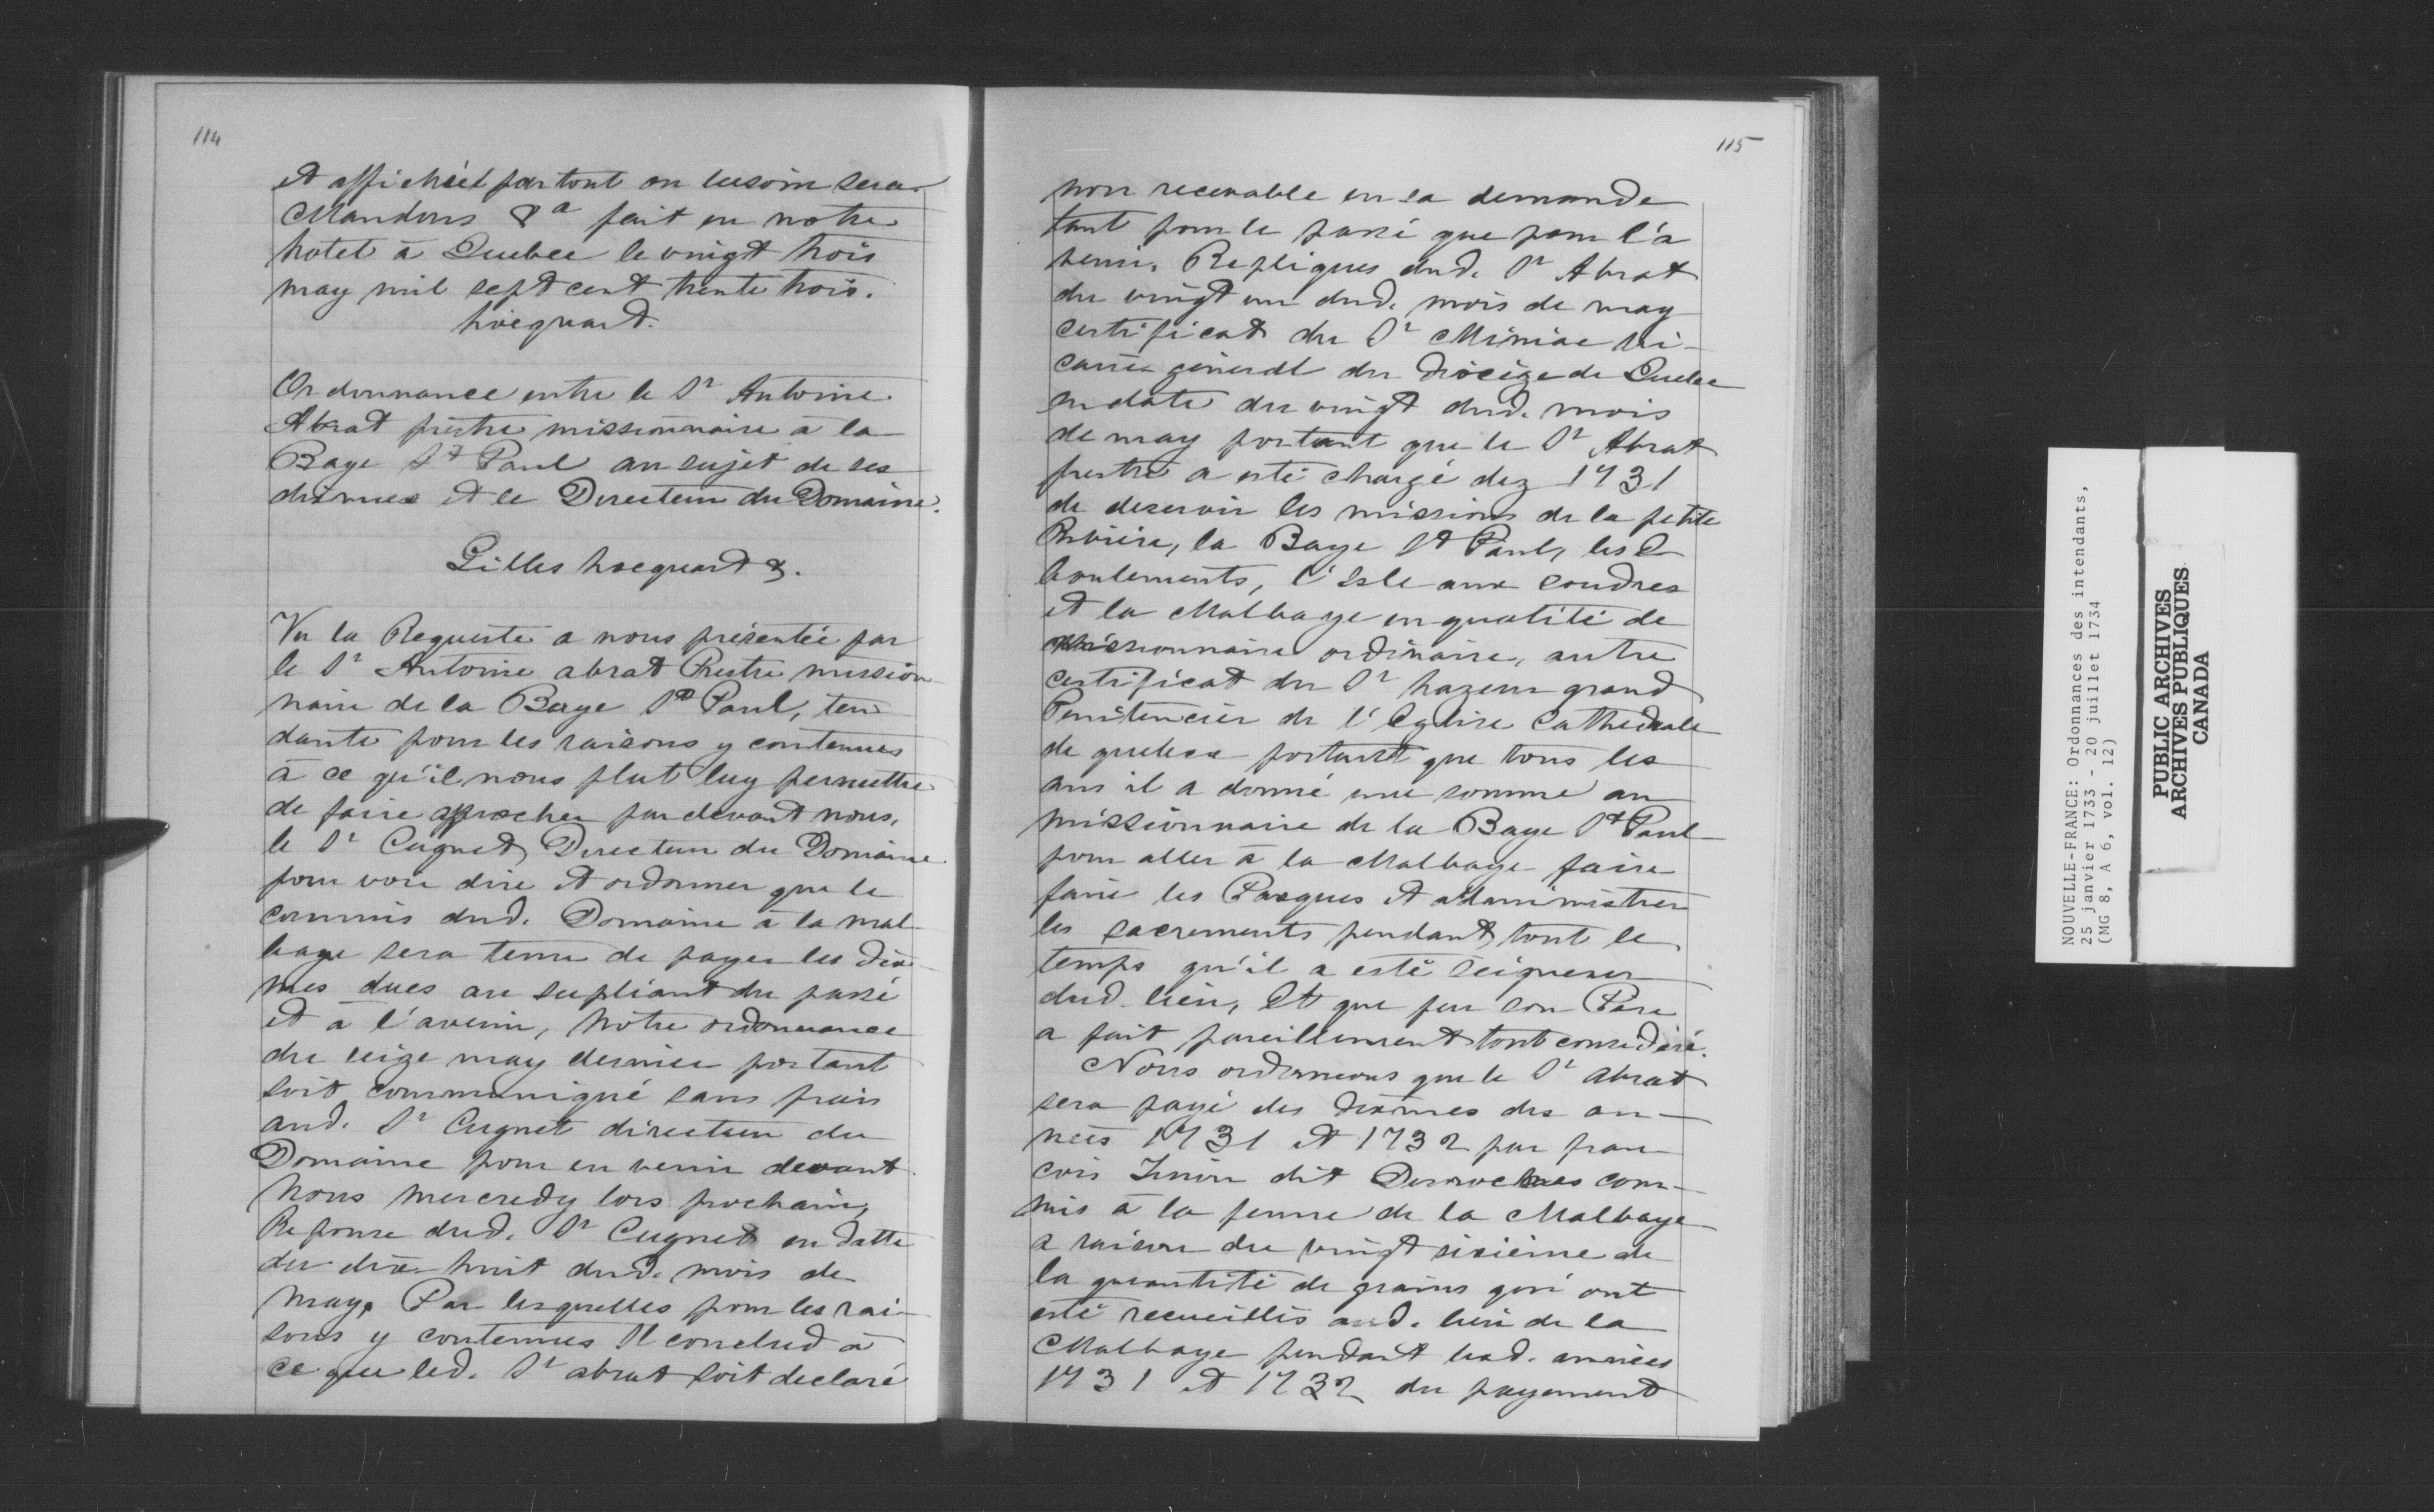 114
et affichéé partout ou besoin sera
Mandons &a fait en notre
hotel à Quebec le vingt trois
may mil sept cent trente trois.
hocquart.
Ordonnance entre le Sr Antoine
Abrat prêtre missionnaire à la
Baye St Paul au sujet de ses
dixmes et le Directeur du Domaine.
Gilles hocquart &.
Vu la Requeste a nous présentée par
le Sr Antoine abrat Prestre mission
naire de la Baye St Paul, ten
dante pour les raisons y contenues
à ce qu'il nous plut luy permettre
de faire aprocher par devant nous,
le Sr Cugnet Directeur du Domaine
pour voir dire et ordonner que le
commis dud. Domaine à la mal
baye sera tenu de payer les dix
mes dues au supliant du passé
et à l'avenir, Notre ordonnance
du seize may dernier portant
soit communiqué sans frais
aud. Sr Cugnet directeur du
Domaine pour en venir devant
Nous mercredy lors prochain,
Reponse dud. Sr Cugnet en datte
du dix huit dud. mois de
may. Par lesquelles pour les rai-
sons y contenues Il conclud à
ce que led. Sr abrat soit declaré
115
non recevable en sa demande
tant pour le passé que pour l'a
venir. Repliques dud. Sr Abrat
du vingt un dud. mois de may
certificat du Sr Miniac Vi-
caire géneral du diocèze de Quebec
en date du vingt dud. mois
de may portant que le Sr Abrat
prestre a esté chargé dez 1731
de deservir les missions de la petite
Rivière, la Baye St Paul, les E
boulements, l'Isle aux Coudres
et la Malbaye en qualité de
missionnaire ordinaire, autre
certificat du Sr hazeur grand
Penitencier de l'Eglise Cathedrale
de quebec portant que tous les
ans il a donné une somme au
missionnaire de la Baye St Paul
pour aller à la Malbaye faire
faire les Pasques et administrer
les sacrements pendant tout le
temps qu'il a esté Seigneur
dud. lieu, Et que feu son Pere
a fait pareillement tout consideré.
Nous ordonnons que le Sr abrat
sera payé des dixmes des an-
nées 1731 et 1732 par fran
cois dit Desroches com-
mis à la ferme de la Malbaye
a raison du vingt sixième de
la quantité de grains qui ont
esté recueillis aud. lieu de la
Malbaye pendant lesd. années
1731 et 1732 du payement
NOUVELLE-FRANCE: Ordonnances des intendants,
25 janvier 1733 - 20 juillet 1734
(MG 8, A 6, vol. 12)
PUBLIC ARCHIVES
ARCHIVES PUBLIQUES
CANADA